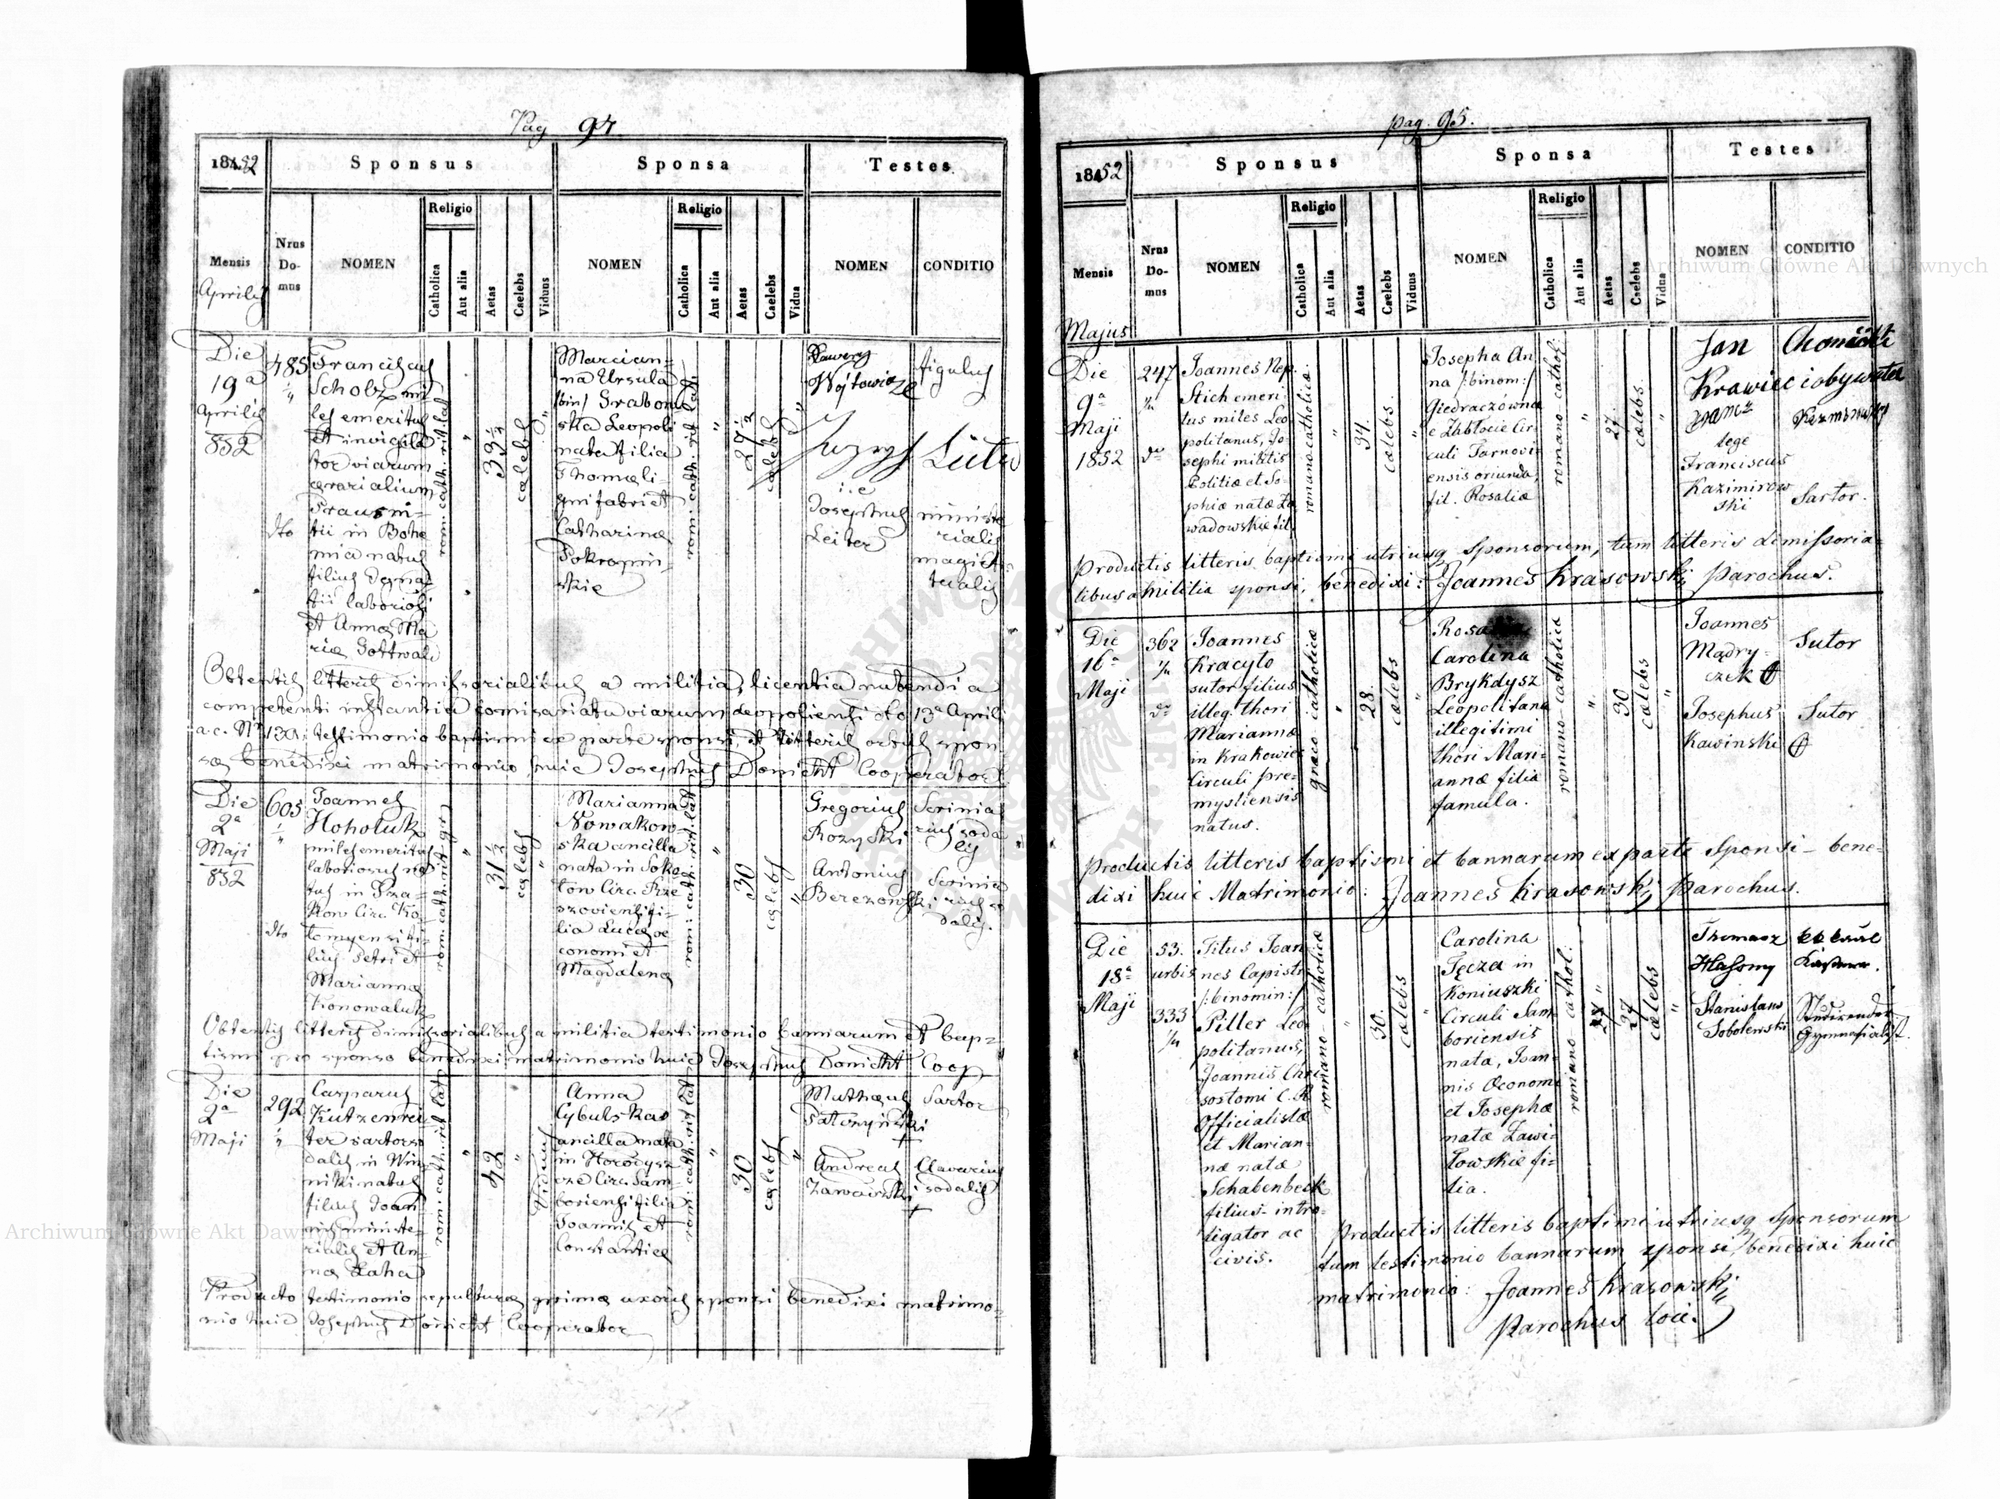 Pag 94.
1852
Sponsus
Sponsa
Testes
Mensis
Aprilis
Nrus Do-mus
NOMEN
Religio
Catholica
Aut alia
Aetas
Caelebs
Viduus
NOMEN
Religio
Catholica
Aut alia
Aetas
Caelebs
Vidua
NOMEN
CONDITIO
Die
19a
Aprilis
852
485
dto
Franciscus
Scholz mi
les emeritus
et invigila
tor viarum
aerarialium
in Bohe
mia natus
filius Igna-
tii laboriosi
et Anna Ma
ria Gottwald
rom: cath: rit: lat:
33 1/2
caelebs
Marcian-
na Ursula
/bin/ Grabow
ska Leopoli
nata filia
Thomae li-
gnifabri et
Catharinae
Pokropiw-
skie
rom: cath: rit: lat:
27 1/2
caelebs
Xawery
Wojtowicz
figulus
Juzeph Liter
i.e
Josephus
Leiter
ministe
rialis
magist
tualis
Obtentis litteris dimissorialibus a militia, licentia nubendi a
competenti instantia Comisariatu viarum Leopoliensi dto 13a Aprilis
a.c. Nr 130, testimonio baptismi ex parte sponsi, et litteris ortus spon
sae benedixi matrimonio huic Josephus Donicht Cooperator
Die
2a
Maji
852
605
dto
Joannes
Hoholuk
miles emeritus
laboriosus na
tus in
kow Circ: Ko-
lomyensi fi-
lius Petri et
Marianna
Konowaluk
rom: cath: rit: gr:
31 1/2
caelebs
Marianna
Nowakow-
ska ancilla
nata in Soko
low Circ: Rze
szoviensi fi-
lia Lucae oe
conomi et
Magdalena
rom: cath: rit: lat:
30
caelebs
Gregorius
Rozyski
Scrinia
rius soda
lis
Antonius
Berezowski
Scrinia
rius so
dalis.
Obtentis litteris dimissorialibus a militia testimonio bannarum et bap-
tismi pro sponso benedixi matrimonio huic Josephus Donicht Coop
Die
2a
Maji
292
Casparus
Kutzenrei
ter sartor so
dalis in Win-
niki natus
filius Joan
nis ministe-
rialis et An-
na Laha
rom: cath: rit: lat:
42
Viduus
Anna
Cybulska
ancilla nata
in Horodysz
cze Circ: Sam-
boriensi filia
Joannis et
Constantiae
rom: cath: rit: lat:
30
caelebs
Mathaeus
Patozynski
+
Sartor
Andreas
Zawadzki
+
Clavarius
sodalis
Producto testimonio sepulturae primae uxoris sponsi benedixi matrimo-
nio huic Josephus Donicht Cooperator
pag. 95.
1852
Sponsus
Sponsa
Testes
Mensis
Majus
Nrus Do-mus
NOMEN
Religio
Catholica
Aut alia
Aetas
Caelebs
Viduus
NOMEN
Religio
Catholica
Aut alia
Aetas
Caelebs
Vidua
NOMEN
CONDITIO
Die
9a
Maji
1852
247
1/4
do
Joannes Nep.
Stich emeri-
tus miles Leo
politanus, Jo-
sephi militis
Politiae et So-
phiae natae Za
wadowskie fil.
romano catholicae
34.
caelebs.
Josepha An
na /:binom:/
Giedraczówna
e Zabłocie Cir
culi Tarnovi-
ensis oriunda,
fil. Rosaliae
romano cathol.
27.
caelebs.
Jan
Krawiec i obywatel
lege
Franciscus
Kazimirow
ski
Sartor.
Productis litteris baptismi utriusq sponsorum, tum litteris dimissoria-
libus a militia sponsi, benedixi: Joannes Krasowski, Parochus.
Die
16a
Maji
362
1/4
do
Joannes
Kracyło
sutor filius
illeg. thori
Marianna
in Krakowiec
Circuli Pre-
mysliensis
natus.
graeco catholicae
28.
caelebs
Rosalia
Carolina
Brykdysz
Leopolitana
illegitimi
thori Mari-
anna filia
famula.
romano catholicae
30
caelebs
Joannes
Mądry-
czek +
Sutor
Josephus
Kawinski +
Sutor
Productis litteris baptismi et bannarum ex parte Sponsi - bene-
dixi huic Matrimonio: Joannes Krasowski, Parochus.
Die
18a
Maji
53.
urbis
333
1/4
Titus Joan
nes Capistr.
/:binomin:/
Piller Leo
politanus,
Joannis Chri
sostomi C. R.
Officialistae
et Marian-
nae natae
Schabenbeck
filius - intro-
ligator ac
civis.
romano - catholicae
30.
caelebs
Carolina
Tęcza in
Koniuszki
Circuli Sam
boriensis
nata, Joan-
nis Oeconomi
et Josephae
natae Zawi-
łowskie fi-
lia.
romano - cathol:
27
caelebs
Thomasz
Stanislaus
Sobolewski
Studirender
Gymnasialist.
Productis litteris baptismi utriusq sponsorum
tum testimonio bannarum sponsi, benedixi huic
matrimonio: Joannes Krasowski
Parochus loci.
Archiwum Główne Akt Dawnych
Archiwum Główne Akt Dawnych